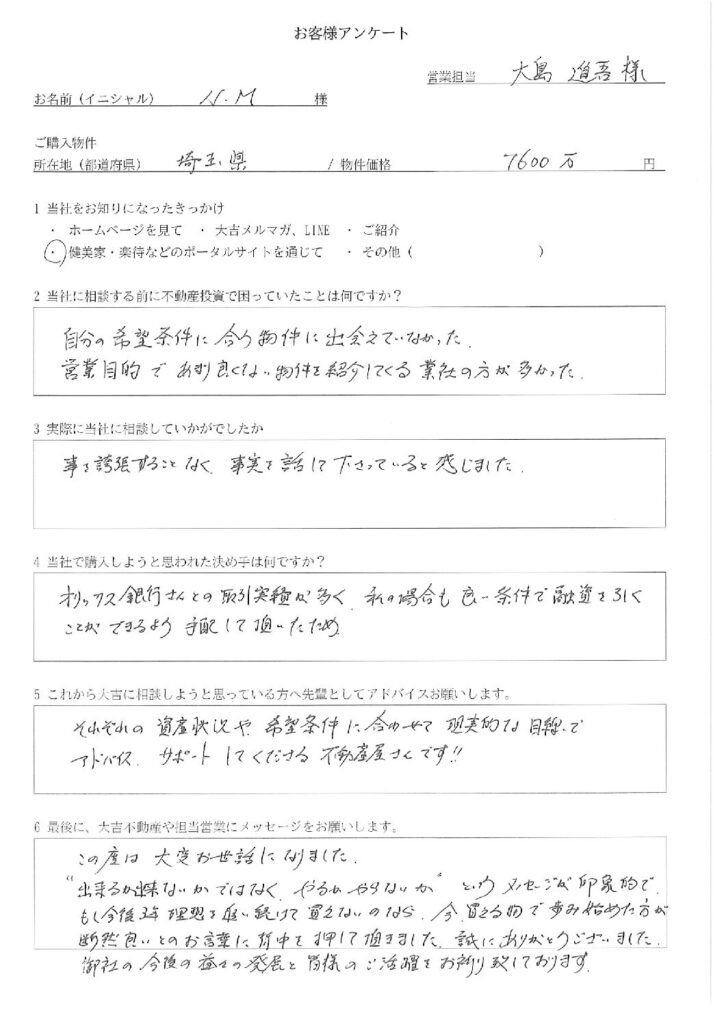 お客様アンケート
営業担当 大島 進吾 様
お名前（イニシャル） N.M 様
ご購入物件
所在地（都道府県） 埼玉県 / 物件価格 7600万 円
1 当社をお知りになったきっかけ
・ ホームページを見て ・ 大吉メルマガ、LINE ・ ご紹介
・ 健美家・楽待などのポータルサイトを通じて ・ その他（ ）
2 当社に相談する前に不動産投資で困っていたことは何ですか？
自分の希望条件に合う物件に出会えていなかった。
営業目的であまり良くない物件を紹介してくる業社の方が多かった。
3 実際に当社に相談していかがでしたか
事を誇張することなく、事実を話して下さっていると感じました。
4 当社で購入しようと思われた決め手は何ですか？
オリックス銀行さんとの取引実績が多く、私の場合も良い条件で融資を引く
ことができるよう手配して頂いたため
5 これから大吉に相談しようと思っている方へ先輩としてアドバイスお願いします。
それぞれの資産状況や希望条件に合わせて現実的な目線で
アドバイス、サポートしてくださる不動産屋さんです!!
6 最後に、大吉不動産や担当営業にメッセージをお願いします。
この度は大変お世話になりました。
"出来るか出来ないかではなく、やるかやらないか"というメッセージが印象的で、
もし今後3年理想を追い続けて買えないのなら、今、買える物で歩み始めた方が
断然良いとのお言葉に背中を押して頂きました。誠にありがとうございました。
御社の今後の益々の発展と皆様のご活躍をお祈り致しております。